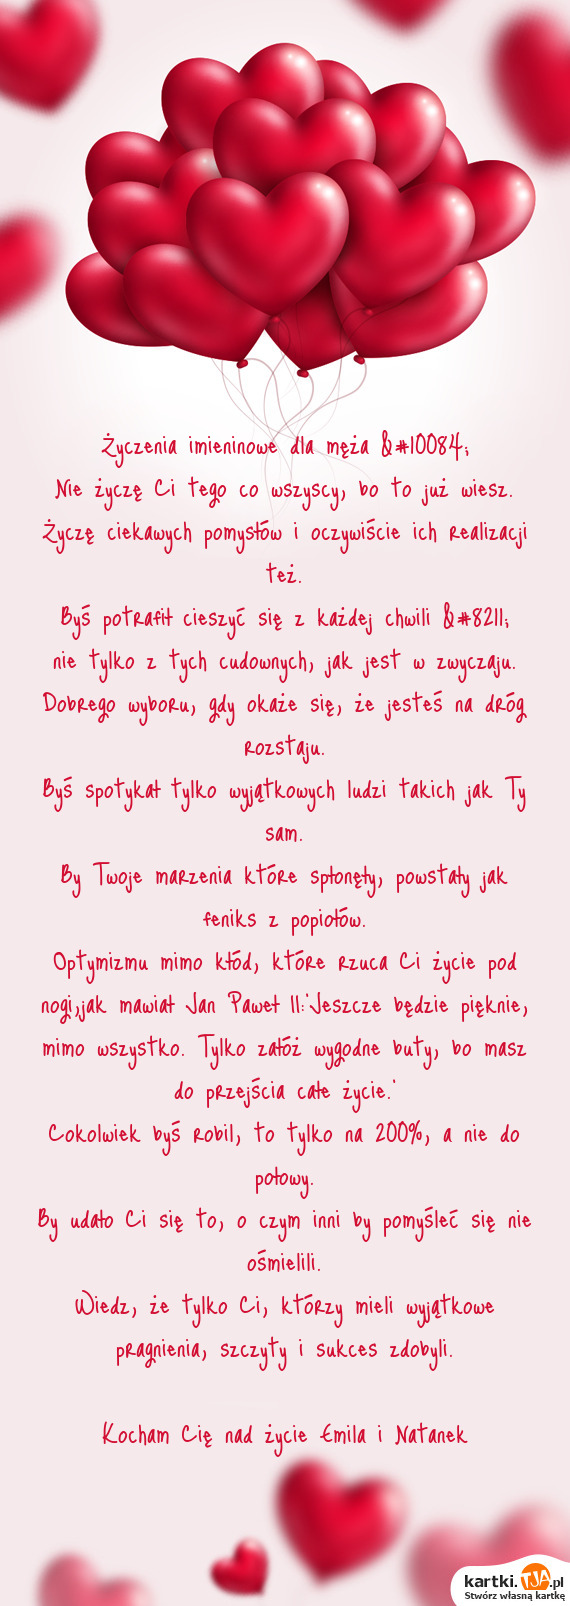 Życzenia imieninowe dla męża &#10084;
Nie życzę Ci tego co wszyscy, bo to już wiesz.
Życzę ciekawych pomysłów i oczywiście ich realizacji
też.
Byś potrafił cieszyć się z każdej chwili &#8211;
nie tylko z tych cudownych, jak jest w zwyczaju.
Dobrego wyboru, gdy okaże się, że jesteś na dróg
rozstaju.
Byś spotykał tylko wyjątkowych ludzi takich jak Ty
sam.
By Twoje marzenia które spłonęły, powstały jak
feniks z popiołów.
Optymizmu mimo kłód, które rzuca Ci życie pod
nogi,jak mawiał Jan Paweł II:"Jeszcze będzie pięknie,
mimo wszystko. Tylko załóż wygodne buty, bo masz
do przejścia całe życie."
Cokolwiek byś robil, to tylko na 200%, a nie do
połowy.
By udało Ci się to, o czym inni by pomyśleć się nie
ośmielili.
Wiedz, że tylko Ci, którzy mieli wyjątkowe
pragnienia, szczyty i sukces zdobyli.
Kocham Cię nad życie Emila i Natanek
kartki.TJA.pl
Stwórz własną kartkę